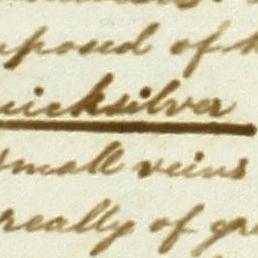 posed of
uicksilver
small veins
really of gr